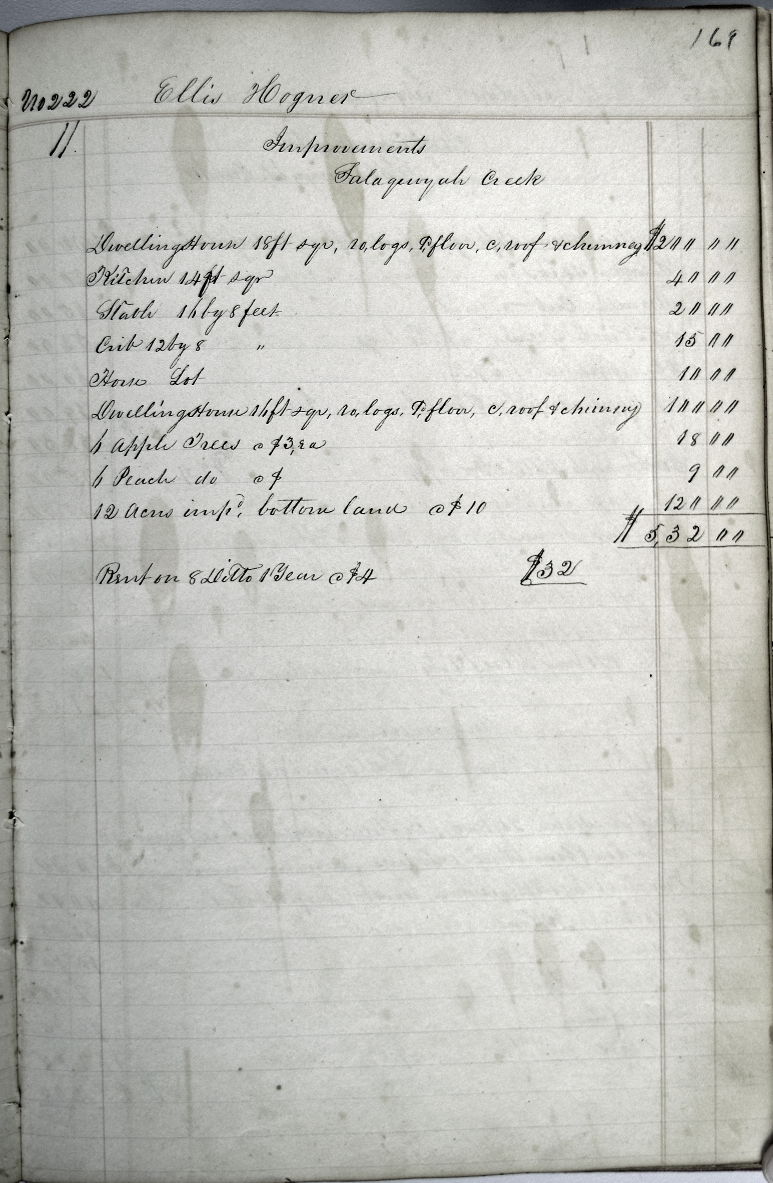 169
No 222 Ellis Hogner
11. Improvements
Creek
Dwelling House 18 ft sqr, ro, logs, P, floor, c, roof & chimney $200 00
Kitchen 14 ft sqr 40 00
Stable 16 by 8 feet 20 00
Crib 12 by 8 " 15 00
Horse Lot 10 00
Dwelling House 16 ft sqr, ro, logs, P, floor, c, roof & chimney 100 00
6 Apple Trees @ $3, ea 18 00
6 Peach do @ $ 9 00
12 Acres imp,d bottom land @ $10 120 00
$ 5,32 00
Rent on 8 Ditto 1 Year @ $4 $32